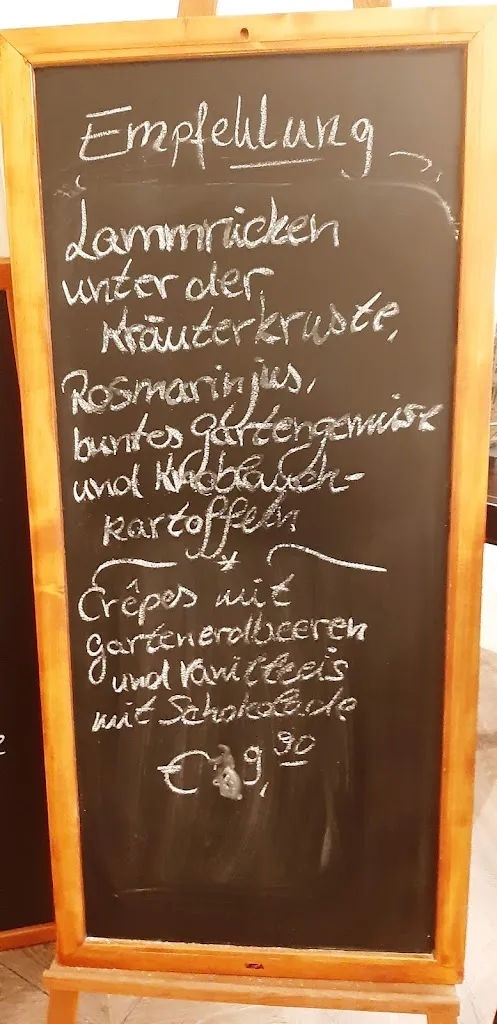 Empfehlung
Lammrücken
unter der
Kräuterkruste,
Rosmarinjus,
buntes Gartengemüse
und Knoblauch-
kartoffeln
*
Crêpes mit
Gartenerdbeeren
und Vanilleeis
mit Schokolade
€ 9,90